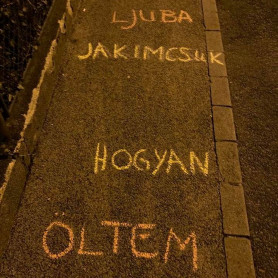 LJUBA
JAKIMCSUK
HOGYAN
ÖLTEM